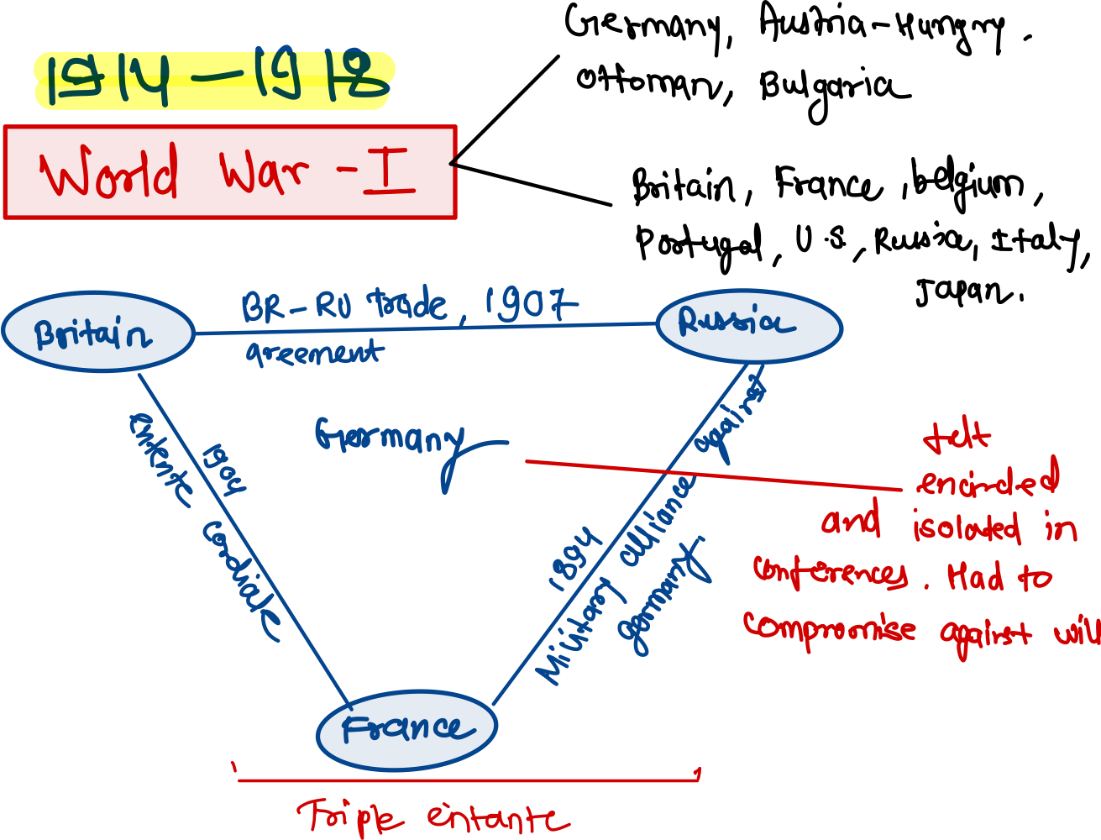 1914-1918
World War - I
Germany, Austria-Hungry.
Ottoman, Bulgaria
Britain, France, belgium,
Portugal, U.S, Russia, Italy,
Japan.
Britain
BR-RU trade, 1907
agreement
Russia
1904
entente cordiale
Germany
1894
Military alliance against
germany.
felt
encircled
and isolated in
conferences. Had to
compromise against will
France
Triple entante